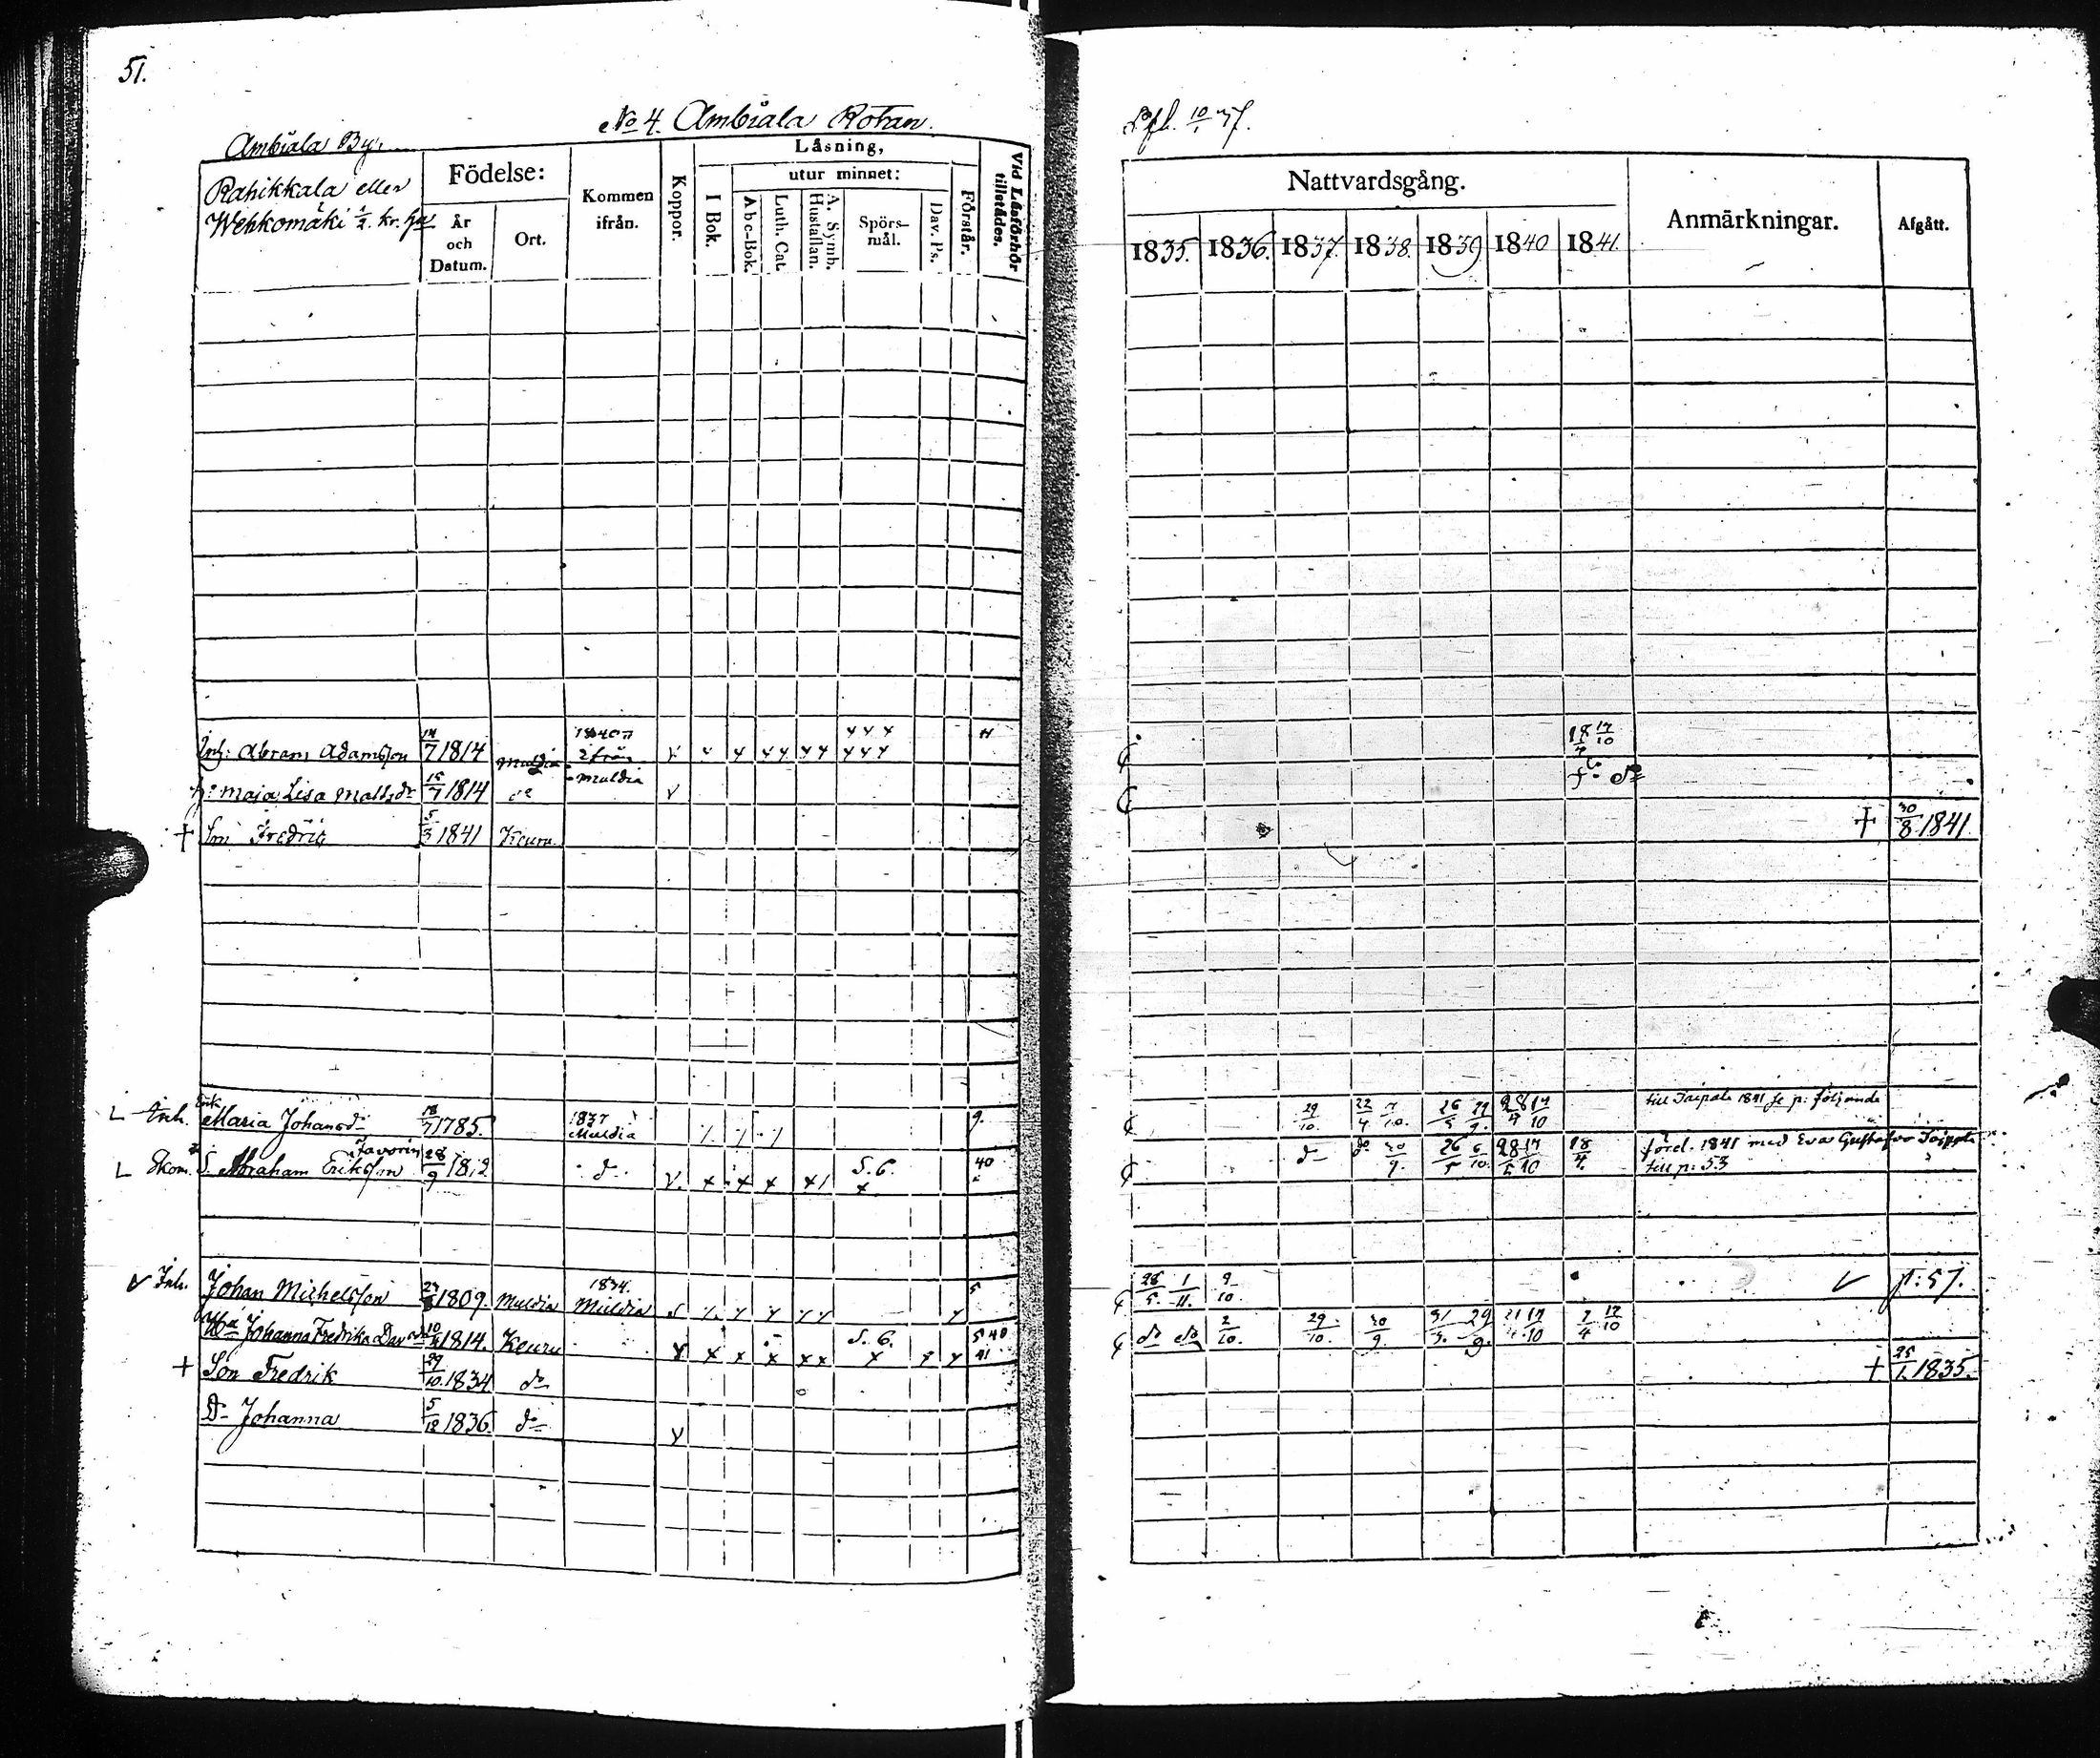 51.
No 4. Ambiala Rotan.
Ambiala By.
Rahikkala eller
Wehkomäki 1/2 kr. h:n
Födelse:
År
och
Datum.
Ort.
Kommen
ifrån.
Koppor.
Läsning,
I Bok.
utur minnet:
Abc-Bok.
Luth. Cat.
A. Symb.
Hustaflan.
Spörs-
mål.
Dav. Ps.
Förstår.
Vid Läsförhör
tillstädes.
Inh: Abram Adamsson 14/7 1814 Muldia
ifrån
Muldia
h: Maja Lisa Mattsdr 15/7 1814 do v
+ Son Fredric 5/3 1841 Keuru
L Inh. Enk. Maria Johansdr 18/7 1785. 1837 Muldia 9.
Favorin
L Skom. S. Abraham Eriksson 28/9 1812 do S. 6. 40
v Inh. Johan Michelsson 27/8 1809. Muldia 1834. Muldia 5
Ha Johanna Fredrika 1814. Keuru S. 6. 5 40 41
+ Son Fredrik 29/10 1834 do
Dr Johanna 5/12 1836. do v
Nattvardsgång.
1835. 1836. 1837. 1838. 1839. 1840 1841.
Anmärkningar.
Afgått.
18/4 17/10
+ 30/8 1841
29/10. 22/4 7/10. 26/5 29/9. 28/4 17/10 till Taipale 1841 se p: följande
do do 30/9. 26/5 6/10. 28/5 17/10 18/4. förel. 1841 med Eva Gustafsdr Taipale
till p: 53
28/5. 1/11. 9/10. v p: 57.
do do 2/10. 29/10. 30/9. 31/3. 29/9. 21/4 17/10 2/4 17/10
+ 25/1. 1835.